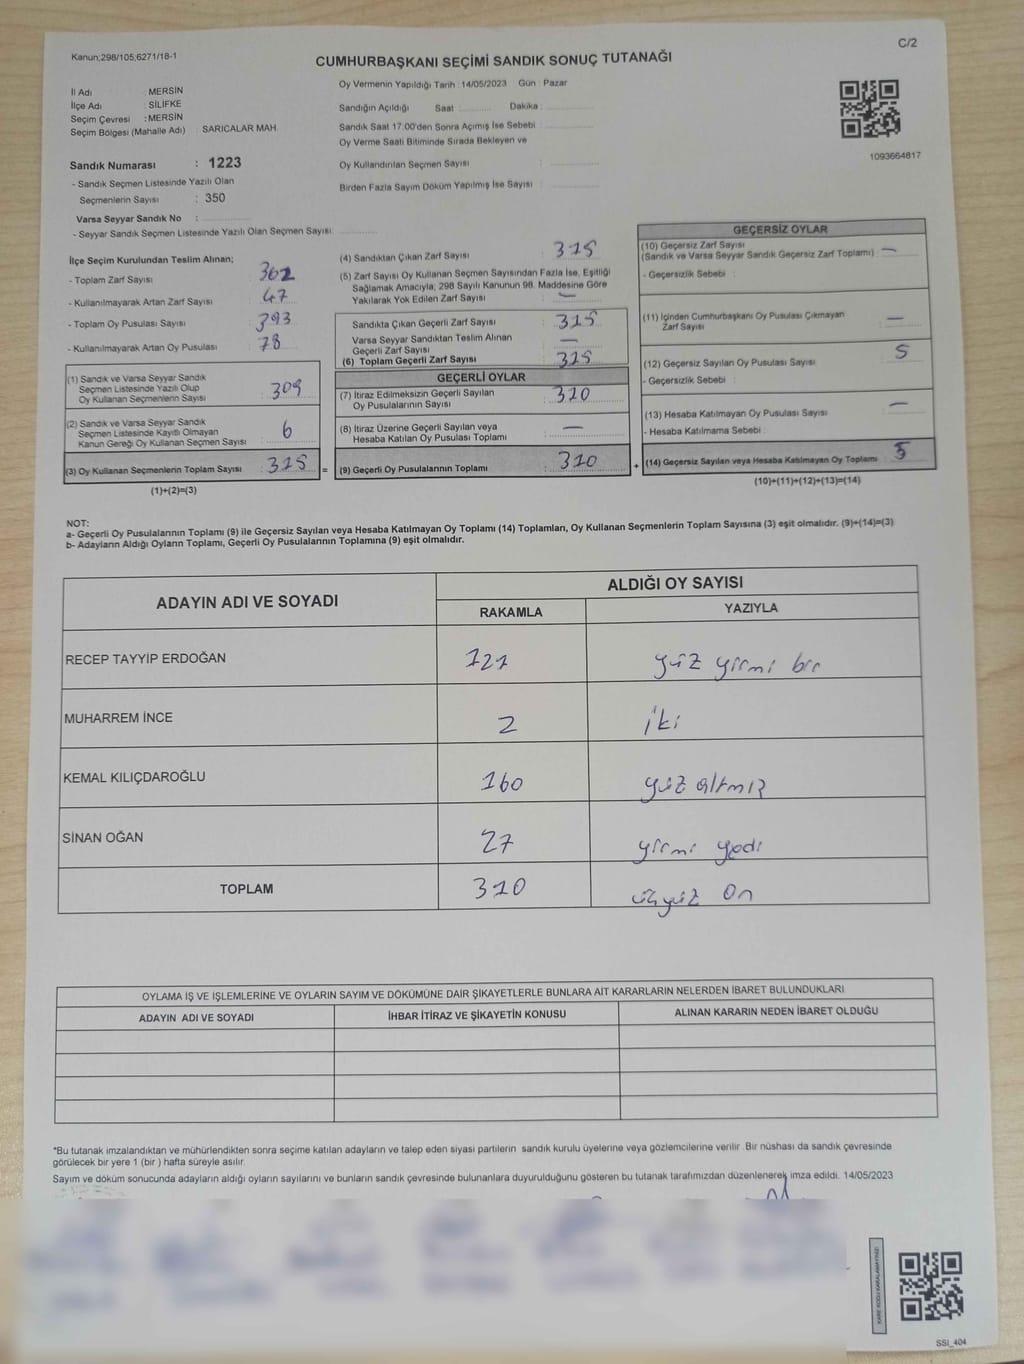 Kanun;298/105;6271/18-1
C/2
CUMHURBAŞKANI SEÇİMİ SANDIK SONUÇ TUTANAĞI
İl Adı : MERSİN
İlçe Adı : SİLİFKE
Seçim Çevresi : MERSİN
Seçim Bölgesi (Mahalle Adı) : SARICALAR MAH.
Sandık Numarası : 1223
- Sandık Seçmen Listesinde Yazılı Olan
Seçmenlerin Sayısı : 350
Varsa Seyyar Sandık No :
- Seyyar Sandık Seçmen Listesinde Yazılı Olan Seçmen Sayısı:
Oy Vermenin Yapıldığı Tarih : 14/05/2023 Gün : Pazar
Sandığın Açıldığı Saat : Dakika :
Sandık Saat 17:00'den Sonra Açımış İse Sebebi :
Oy Verme Saati Bitiminde Sırada Bekleyen ve
Oy Kullandırılan Seçmen Sayısı :
Birden Fazla Sayım Döküm Yapılmış İse Sayısı :
1093664817
İlçe Seçim Kurulundan Teslim Alınan;
- Toplam Zarf Sayısı : 362
- Kullanılmayarak Artan Zarf Sayısı : 47
- Toplam Oy Pusulası Sayısı : 393
- Kullanılmayarak Artan Oy Pusulası : 78
(1) Sandık ve Varsa Seyyar Sandık
Seçmen Listesinde Yazılı Olup
Oy Kullanan Seçmenlerin Sayısı : 309
(2) Sandık ve Varsa Seyyar Sandık
Seçmen Listesinde Kayıtlı Olmayan
Kanun Gereği Oy Kullanan Seçmen Sayısı : 6
(3) Oy Kullanan Seçmenlerin Toplam Sayısı : 315 =
(1)+(2)=(3)
(4) Sandıktan Çıkan Zarf Sayısı : 315
(5) Zarf Sayısı Oy Kullanan Seçmen Sayısından Fazla İse, Eşitliği
Sağlamak Amacıyla; 298 Sayılı Kanunun 98. Maddesine Göre
Yakılarak Yok Edilen Zarf Sayısı : —
Sandıkta Çıkan Geçerli Zarf Sayısı : 315
Varsa Seyyar Sandıktan Teslim Alınan
Geçerli Zarf Sayısı : —
(6) Toplam Geçerli Zarf Sayısı : 315
GEÇERLİ OYLAR
(7) İtiraz Edilmeksizin Geçerli Sayılan
Oy Pusulalarının Sayısı : 310
(8) İtiraz Üzerine Geçerli Sayılan veya
Hesaba Katılan Oy Pusulası Toplamı : —
(9) Geçerli Oy Pusulalarının Toplamı : 310 +
GEÇERSİZ OYLAR
(10) Geçersiz Zarf Sayısı
(Sandık ve Varsa Seyyar Sandık Geçersiz Zarf Toplamı) : —
- Geçersizlik Sebebi :
(11) İçinden Cumhurbaşkanı Oy Pusulası Çıkmayan
Zarf Sayısı : —
(12) Geçersiz Sayılan Oy Pusulası Sayısı : 5
- Geçersizlik Sebebi :
(13) Hesaba Katılmayan Oy Pusulası Sayısı : —
- Hesaba Katılmama Sebebi :
(14) Geçersiz Sayılan veya Hesaba Katılmayan Oy Toplamı : 5
(10)+(11)+(12)+(13)=(14)
NOT:
a- Geçerli Oy Pusulalarının Toplamı (9) ile Geçersiz Sayılan veya Hesaba Katılmayan Oy Toplamı (14) Toplamları, Oy Kullanan Seçmenlerin Toplam Sayısına (3) eşit olmalıdır. (9)+(14)=(3)
b- Adayların Aldığı Oyların Toplamı, Geçerli Oy Pusulalarının Toplamına (9) eşit olmalıdır.
ADAYIN ADI VE SOYADI
ALDIĞI OY SAYISI
RAKAMLA YAZIYLA
RECEP TAYYİP ERDOĞAN 121 yüz yirmi bir
MUHARREM İNCE 2 iki
KEMAL KILIÇDAROĞLU 160 yüz altmış
SİNAN OĞAN 27 yirmi yedi
TOPLAM 310 üçyüz on
OYLAMA İŞ VE İŞLEMLERİNE VE OYLARIN SAYIM VE DÖKÜMÜNE DAİR ŞİKAYETLERLE BUNLARA AİT KARARLARIN NELERDEN İBARET BULUNDUKLARI
ADAYIN ADI VE SOYADI İHBAR İTİRAZ VE ŞİKAYETİN KONUSU ALINAN KARARIN NEDEN İBARET OLDUĞU
*Bu tutanak imzalandıktan ve mühürlendikten sonra seçime katılan adayların ve talep eden siyasi partilerin sandık kurulu üyelerine veya gözlemcilerine verilir. Bir nüshası da sandık çevresinde
görülecek bir yere 1 (bir ) hafta süreyle asılır.
Sayım ve döküm sonucunda adayların aldığı oyların sayılarını ve bunların sandık çevresinde bulunanlara duyurulduğunu gösteren bu tutanak tarafımızdan düzenlenerek imza edildi. 14/05/2023
KARE KODU KARALAMAYINIZ!
SSI_404